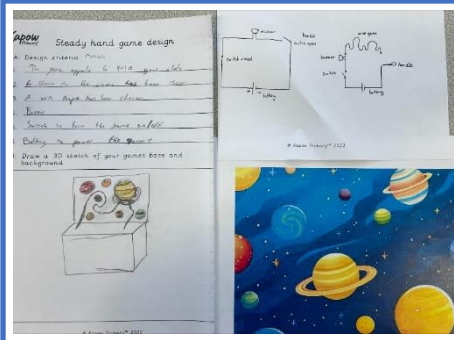 Kapow
Primary
Steady hand game design
Design criteria
1. The game appeals to
2. A theme for the game has been chosen
3. A wire shape has been chosen
4. Buzzer
5. Switch to turn the game on/off
6. Battery to power the game
Draw a 3D sketch of your games base and
background
© Kapow Primary™ 2022
buzzer
switch closed
battery
wire game
buzzer
switch
handle
battery
© Kapow Primary™ 2022